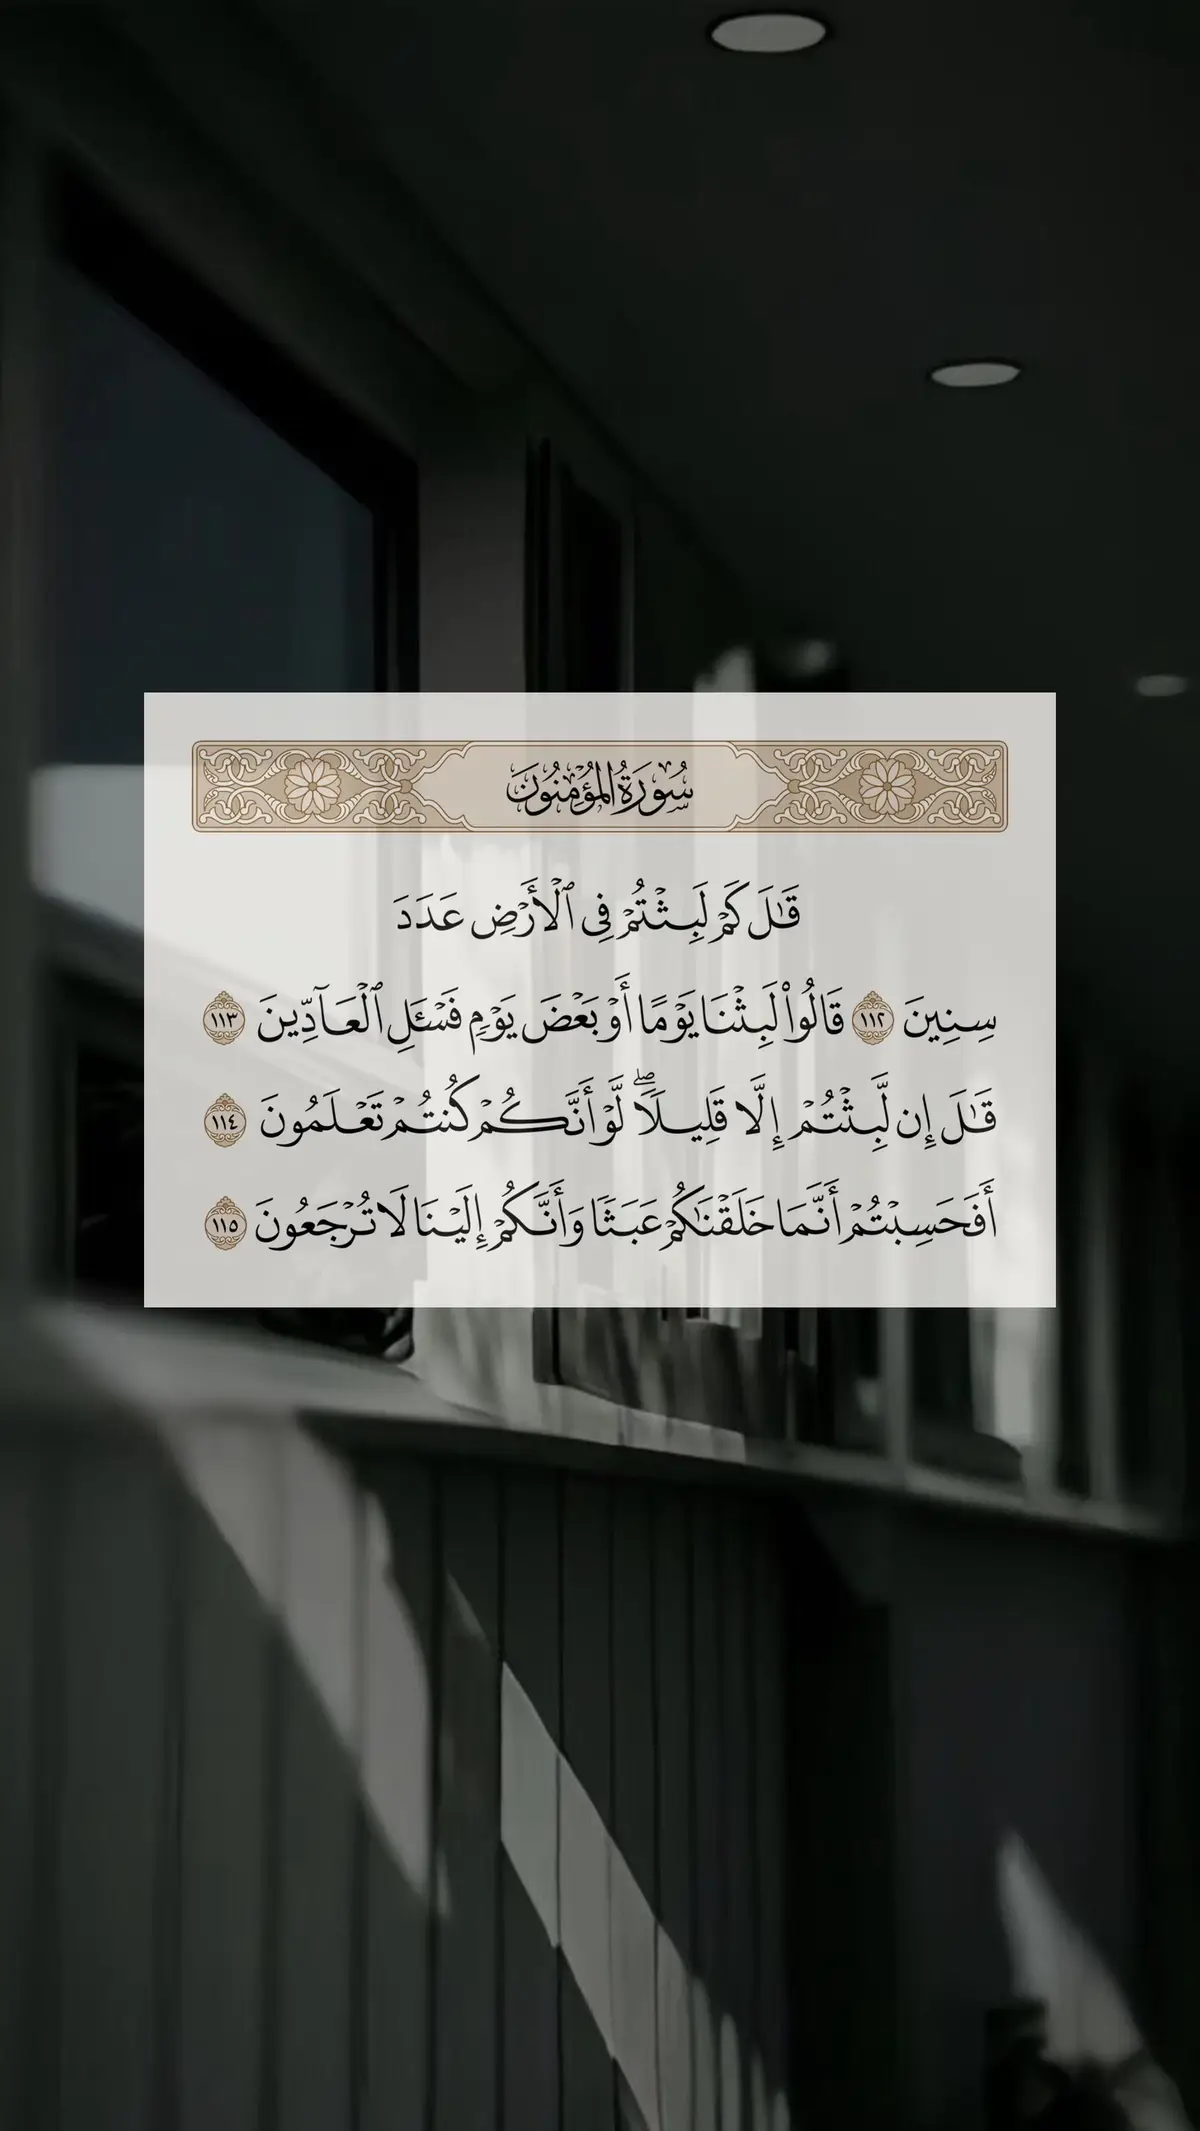 سُورَةُ المُؤْمِنُونَ
قَٰلَ كَمْ لَبِثْتُمْ فِى ٱلْأَرْضِ عَدَدَ
سِنِينَ ١١٢ قَالُوا۟ لَبِثْنَا يَوْمًا أَوْ بَعْضَ يَوْمٍ فَسْـَٔلِ ٱلْعَآدِّينَ ١١٣
قَٰلَ إِن لَّبِثْتُمْ إِلَّا قَلِيلًا ۖ لَّوْ أَنَّكُمْ كُنتُمْ تَعْلَمُونَ ١١٤
أَفَحَسِبْتُمْ أَنَّمَا خَلَقْنَٰكُمْ عَبَثًا وَأَنَّكُمْ إِلَيْنَا لَا تُرْجَعُونَ ١١٥